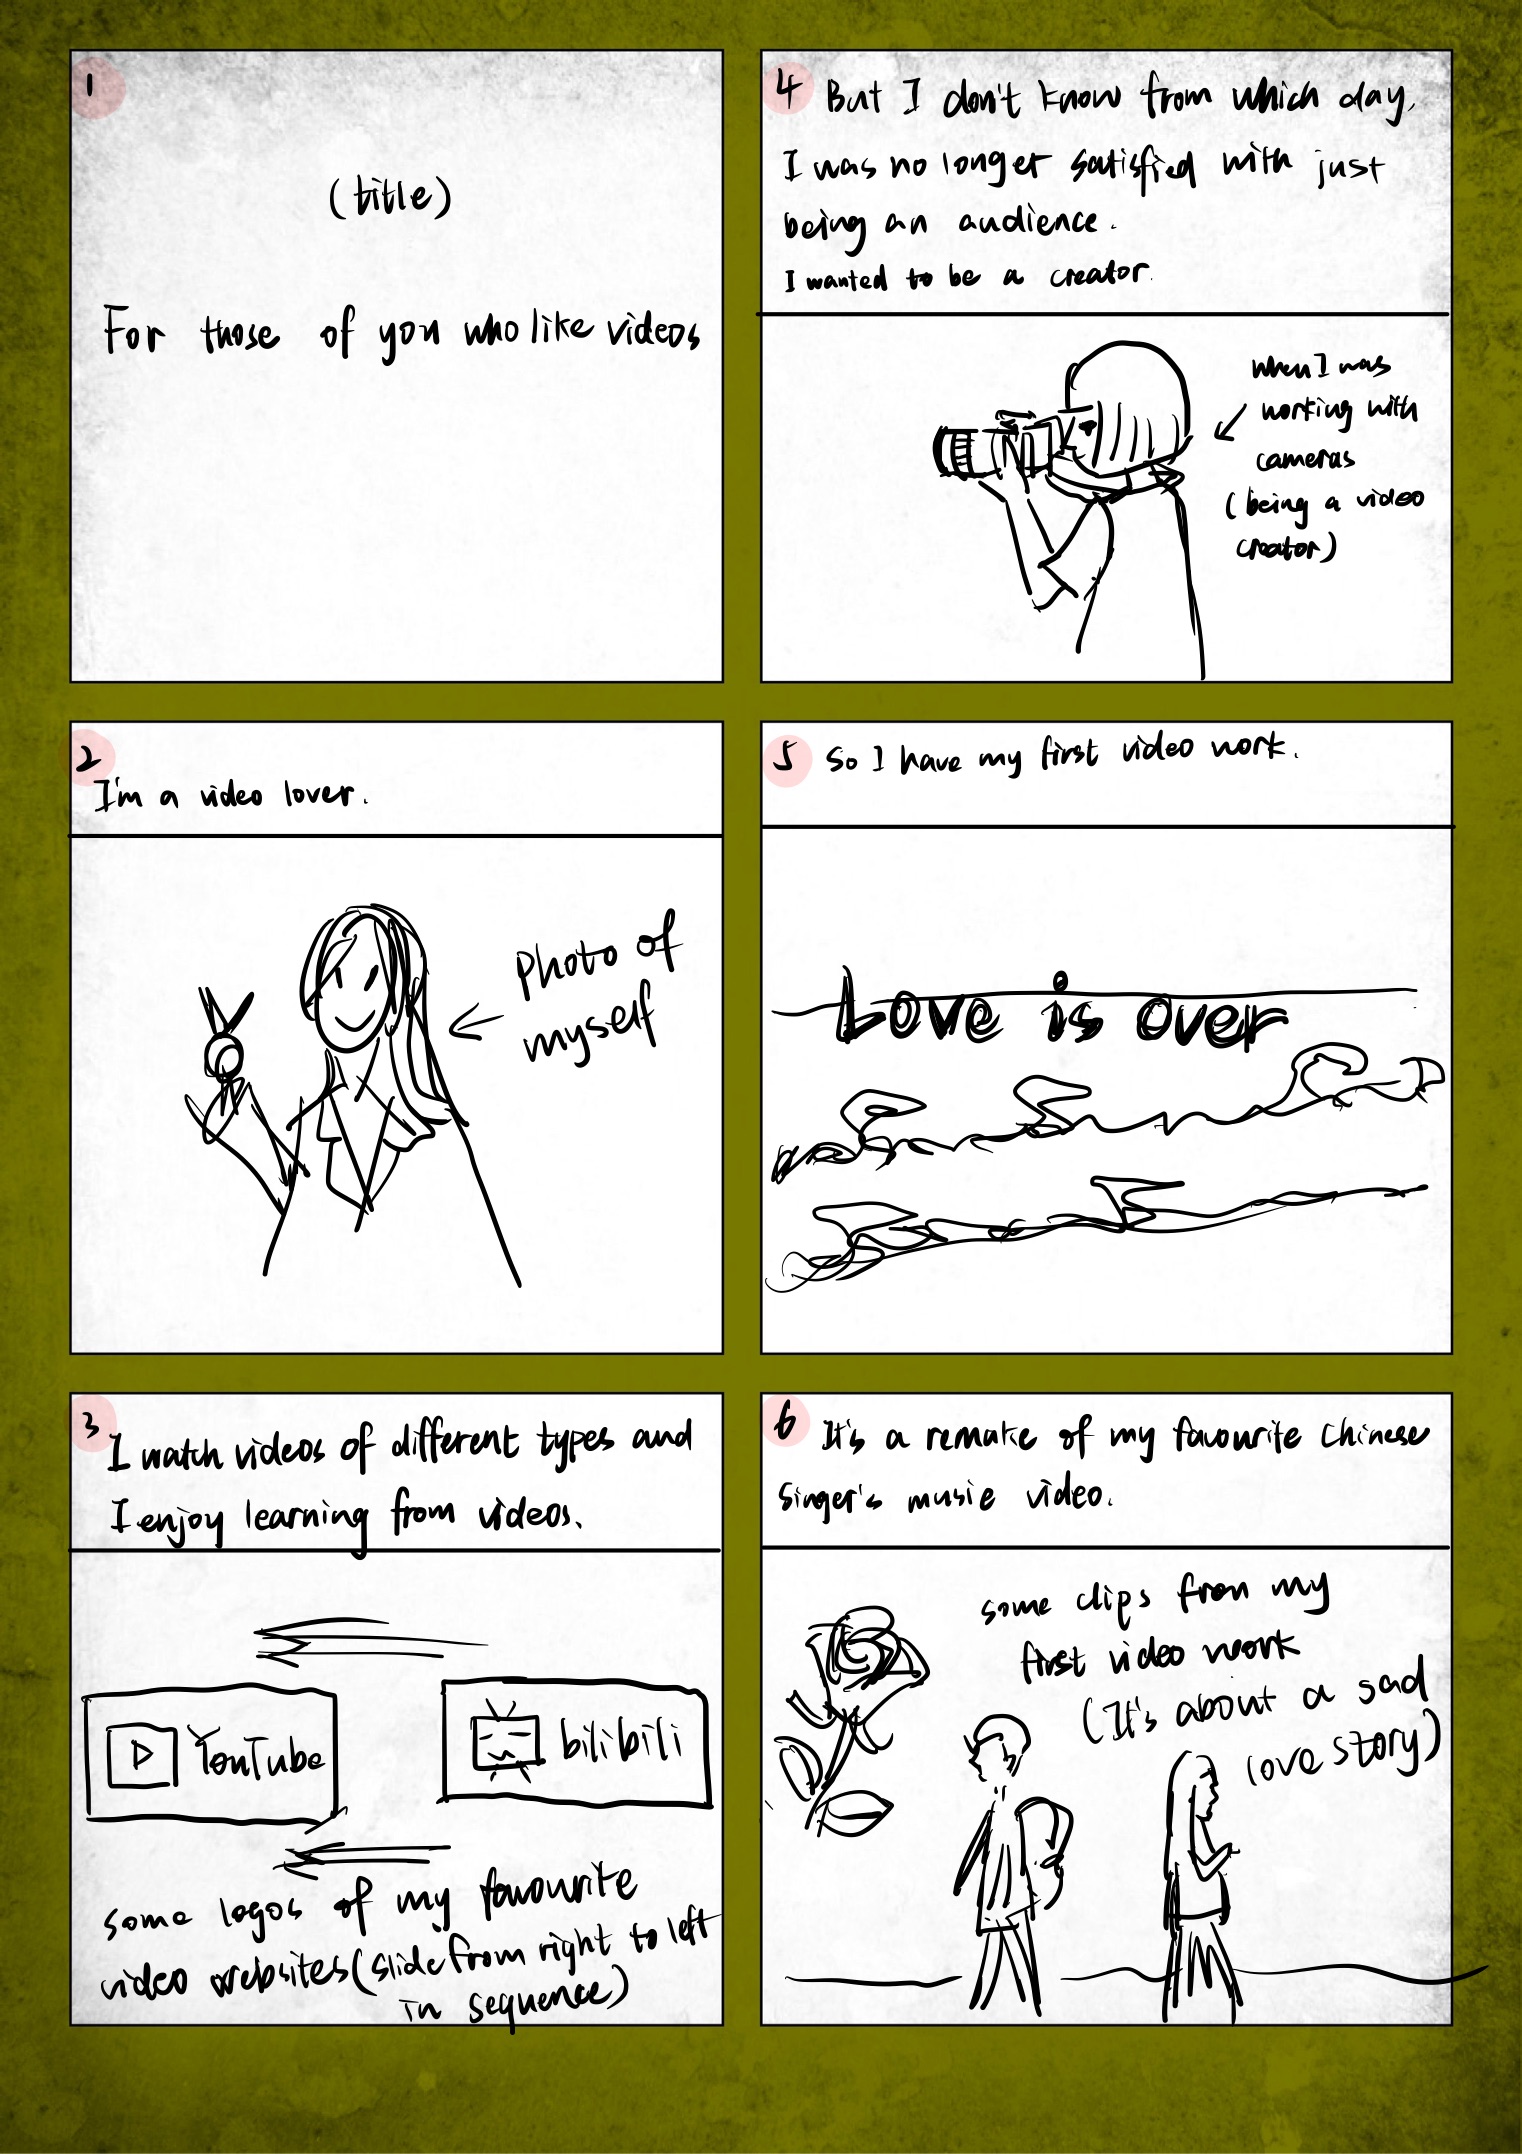 1
(title)
For those of you who like videos
2
I'm a video lover.
photo of
myself
3
I watch videos of different types and
I enjoy learning from videos.
YouTube
bilibili
some logos of my favourite
video websites (slide from right to left
in sequence)
4
But I don't know from which day,
I was no longer satisfied with just
being an audience.
I wanted to be a creator.
when I was
working with
cameras
(being a video
creator)
5
So I have my first video work.
Love is over
6
It's a remake of my favourite Chinese
Singer's music video.
some clips from my
first video work
(It's about a sad
love story)